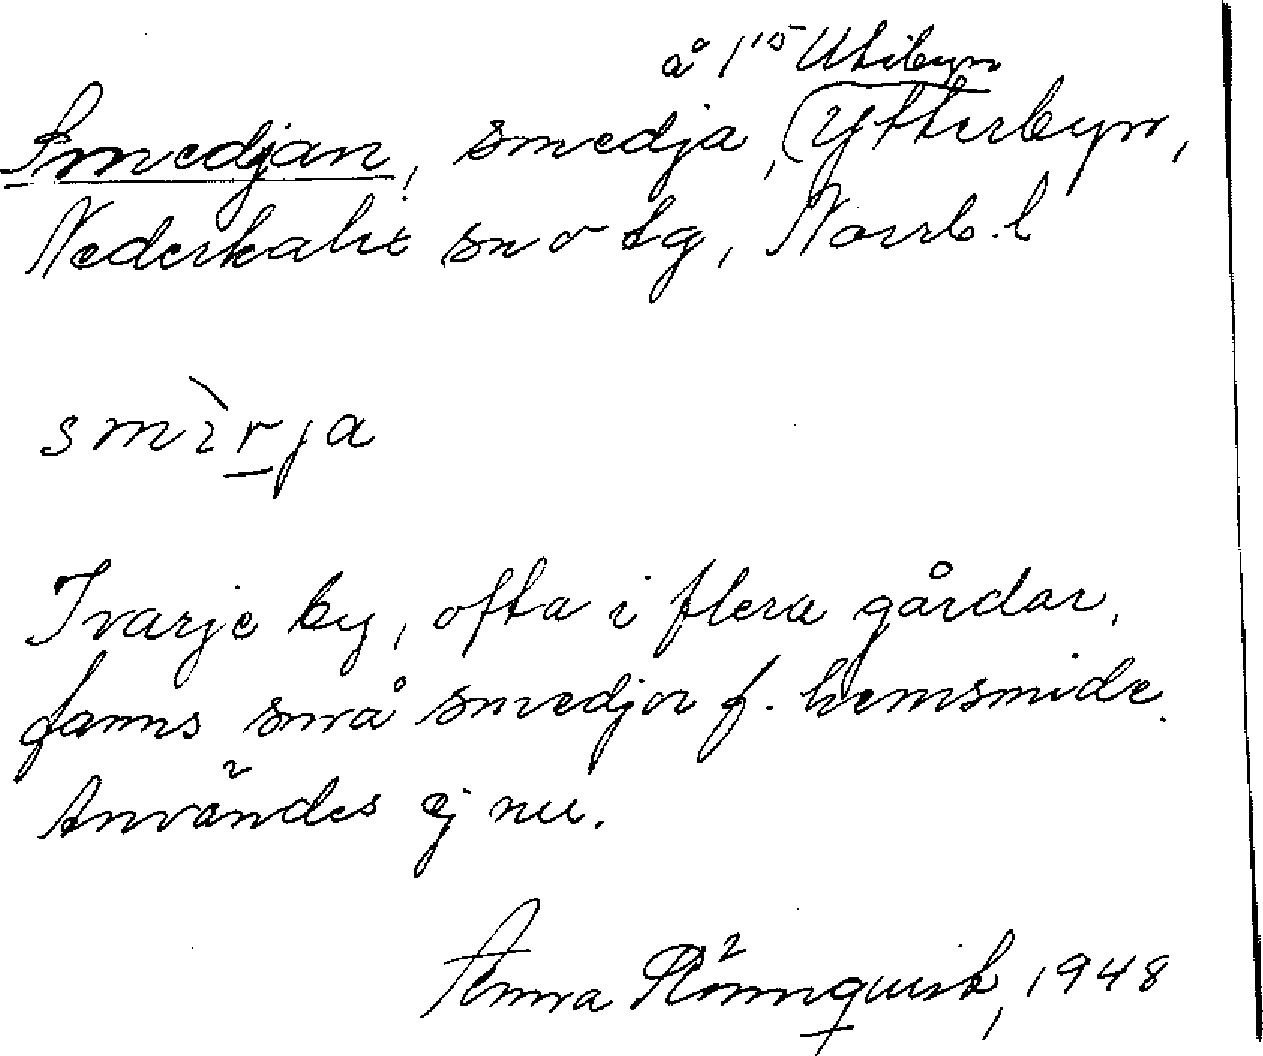 å 1¹⁵ Utibyn
Smedjan, smedja, (Ytterbyn,
Nederkalix sn o tg, Norrb. l
smìrja
I varje by, ofta i flera gårdar,
fanns små smedjor f. hemsmide.
Användes ej nu.
Anna Rönnquist, 1948